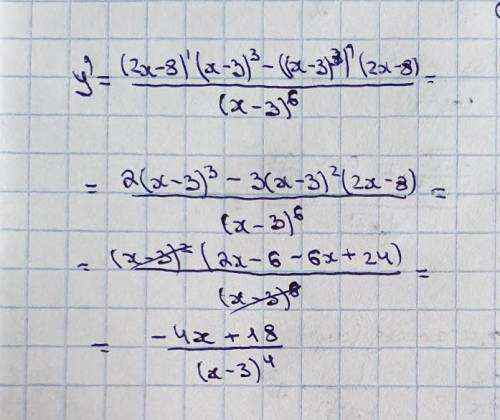 y' = ((2x-8)'(x-3)³ - ((x-3)³)'(2x-8))/(x-3)⁶ =
= (2(x-3)³ - 3(x-3)²(2x-8))/(x-3)⁶ =
= ((x-3)²(2x-6-6x+24))/(x-3)⁶ =
= (-4x+18)/(x-3)⁴